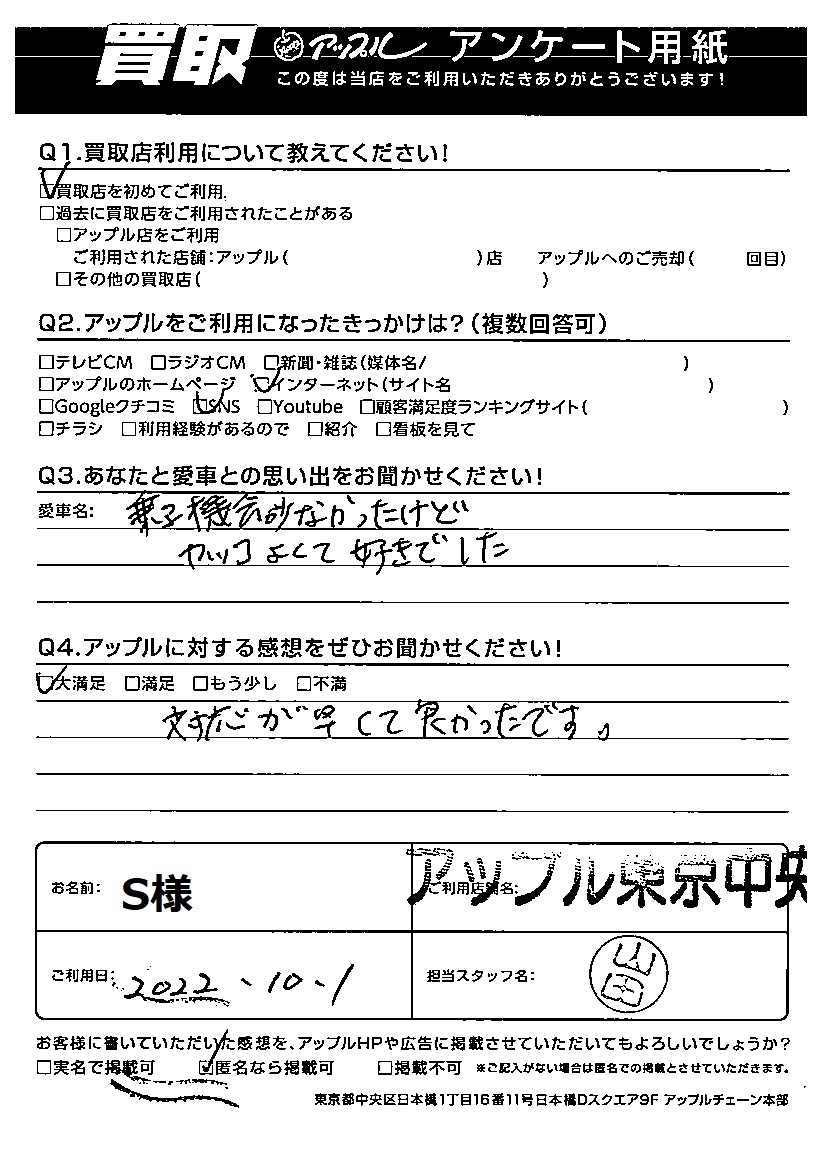 買取 アップル アンケート用紙
この度は当店をご利用いただきありがとうございます!
Q1.買取店利用について教えてください!
☑買取店を初めてご利用.
□過去に買取店をご利用されたことがある
□アップル店をご利用
ご利用された店舗:アップル( )店 アップルへのご売却( 回目)
□その他の買取店( )
Q2.アップルをご利用になったきっかけは?(複数回答可)
□テレビCM □ラジオCM □新聞・雑誌(媒体名/ )
□アップルのホームページ ☑インターネット(サイト名 )
□Googleクチコミ ☑SNS □Youtube □顧客満足度ランキングサイト( )
□チラシ □利用経験があるので □紹介 □看板を見て
Q3.あなたと愛車との思い出をお聞かせください!
愛車名: 乗る機会少なかったけど
カッコよくて好きでした
Q4.アップルに対する感想をぜひお聞かせください!
☑大満足 □満足 □もう少し □不満
対応が早くて良かったです。
お名前: S様 ご利用店舗名: アップル東京中央
ご利用日: 2022、10、1 担当スタッフ名: 山田
お客様に書いていただいた感想を、アップルHPや広告に掲載させていただいてもよろしいでしょうか?
□実名で掲載可 ☑匿名なら掲載可 □掲載不可 ※ご記入がない場合は匿名での掲載とさせていただきます。
東京都中央区日本橋1丁目16番11号日本橋Dスクエア9F アップルチェーン本部